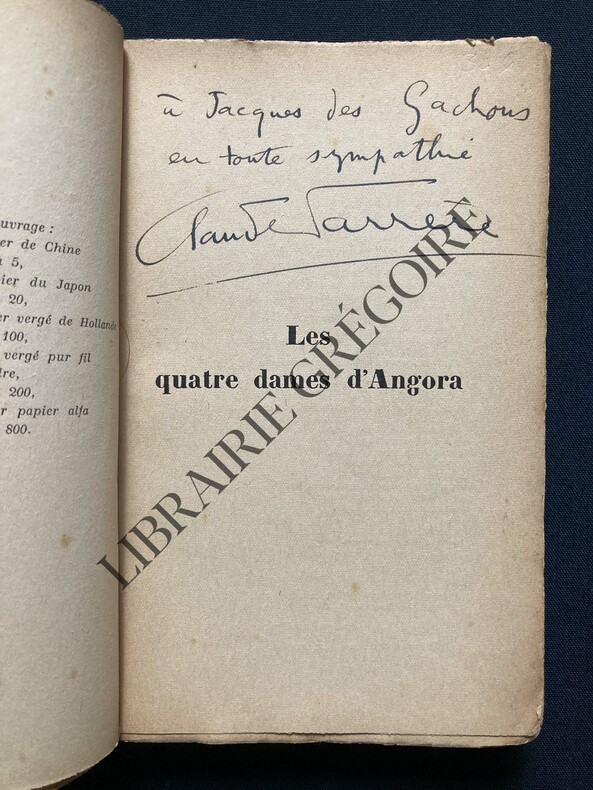 uvrage :
er de Chine
à 5,
ier du Japon
20,
er vergé de Hollande
100,
vergé pur fil
dre,
200,
r papier alfa
800.
à Jacques des Gachons
en toute sympathie
Claude Farrère
Les
quatre dames d'Angora
LIBRAIRIE GRÉGOIRE